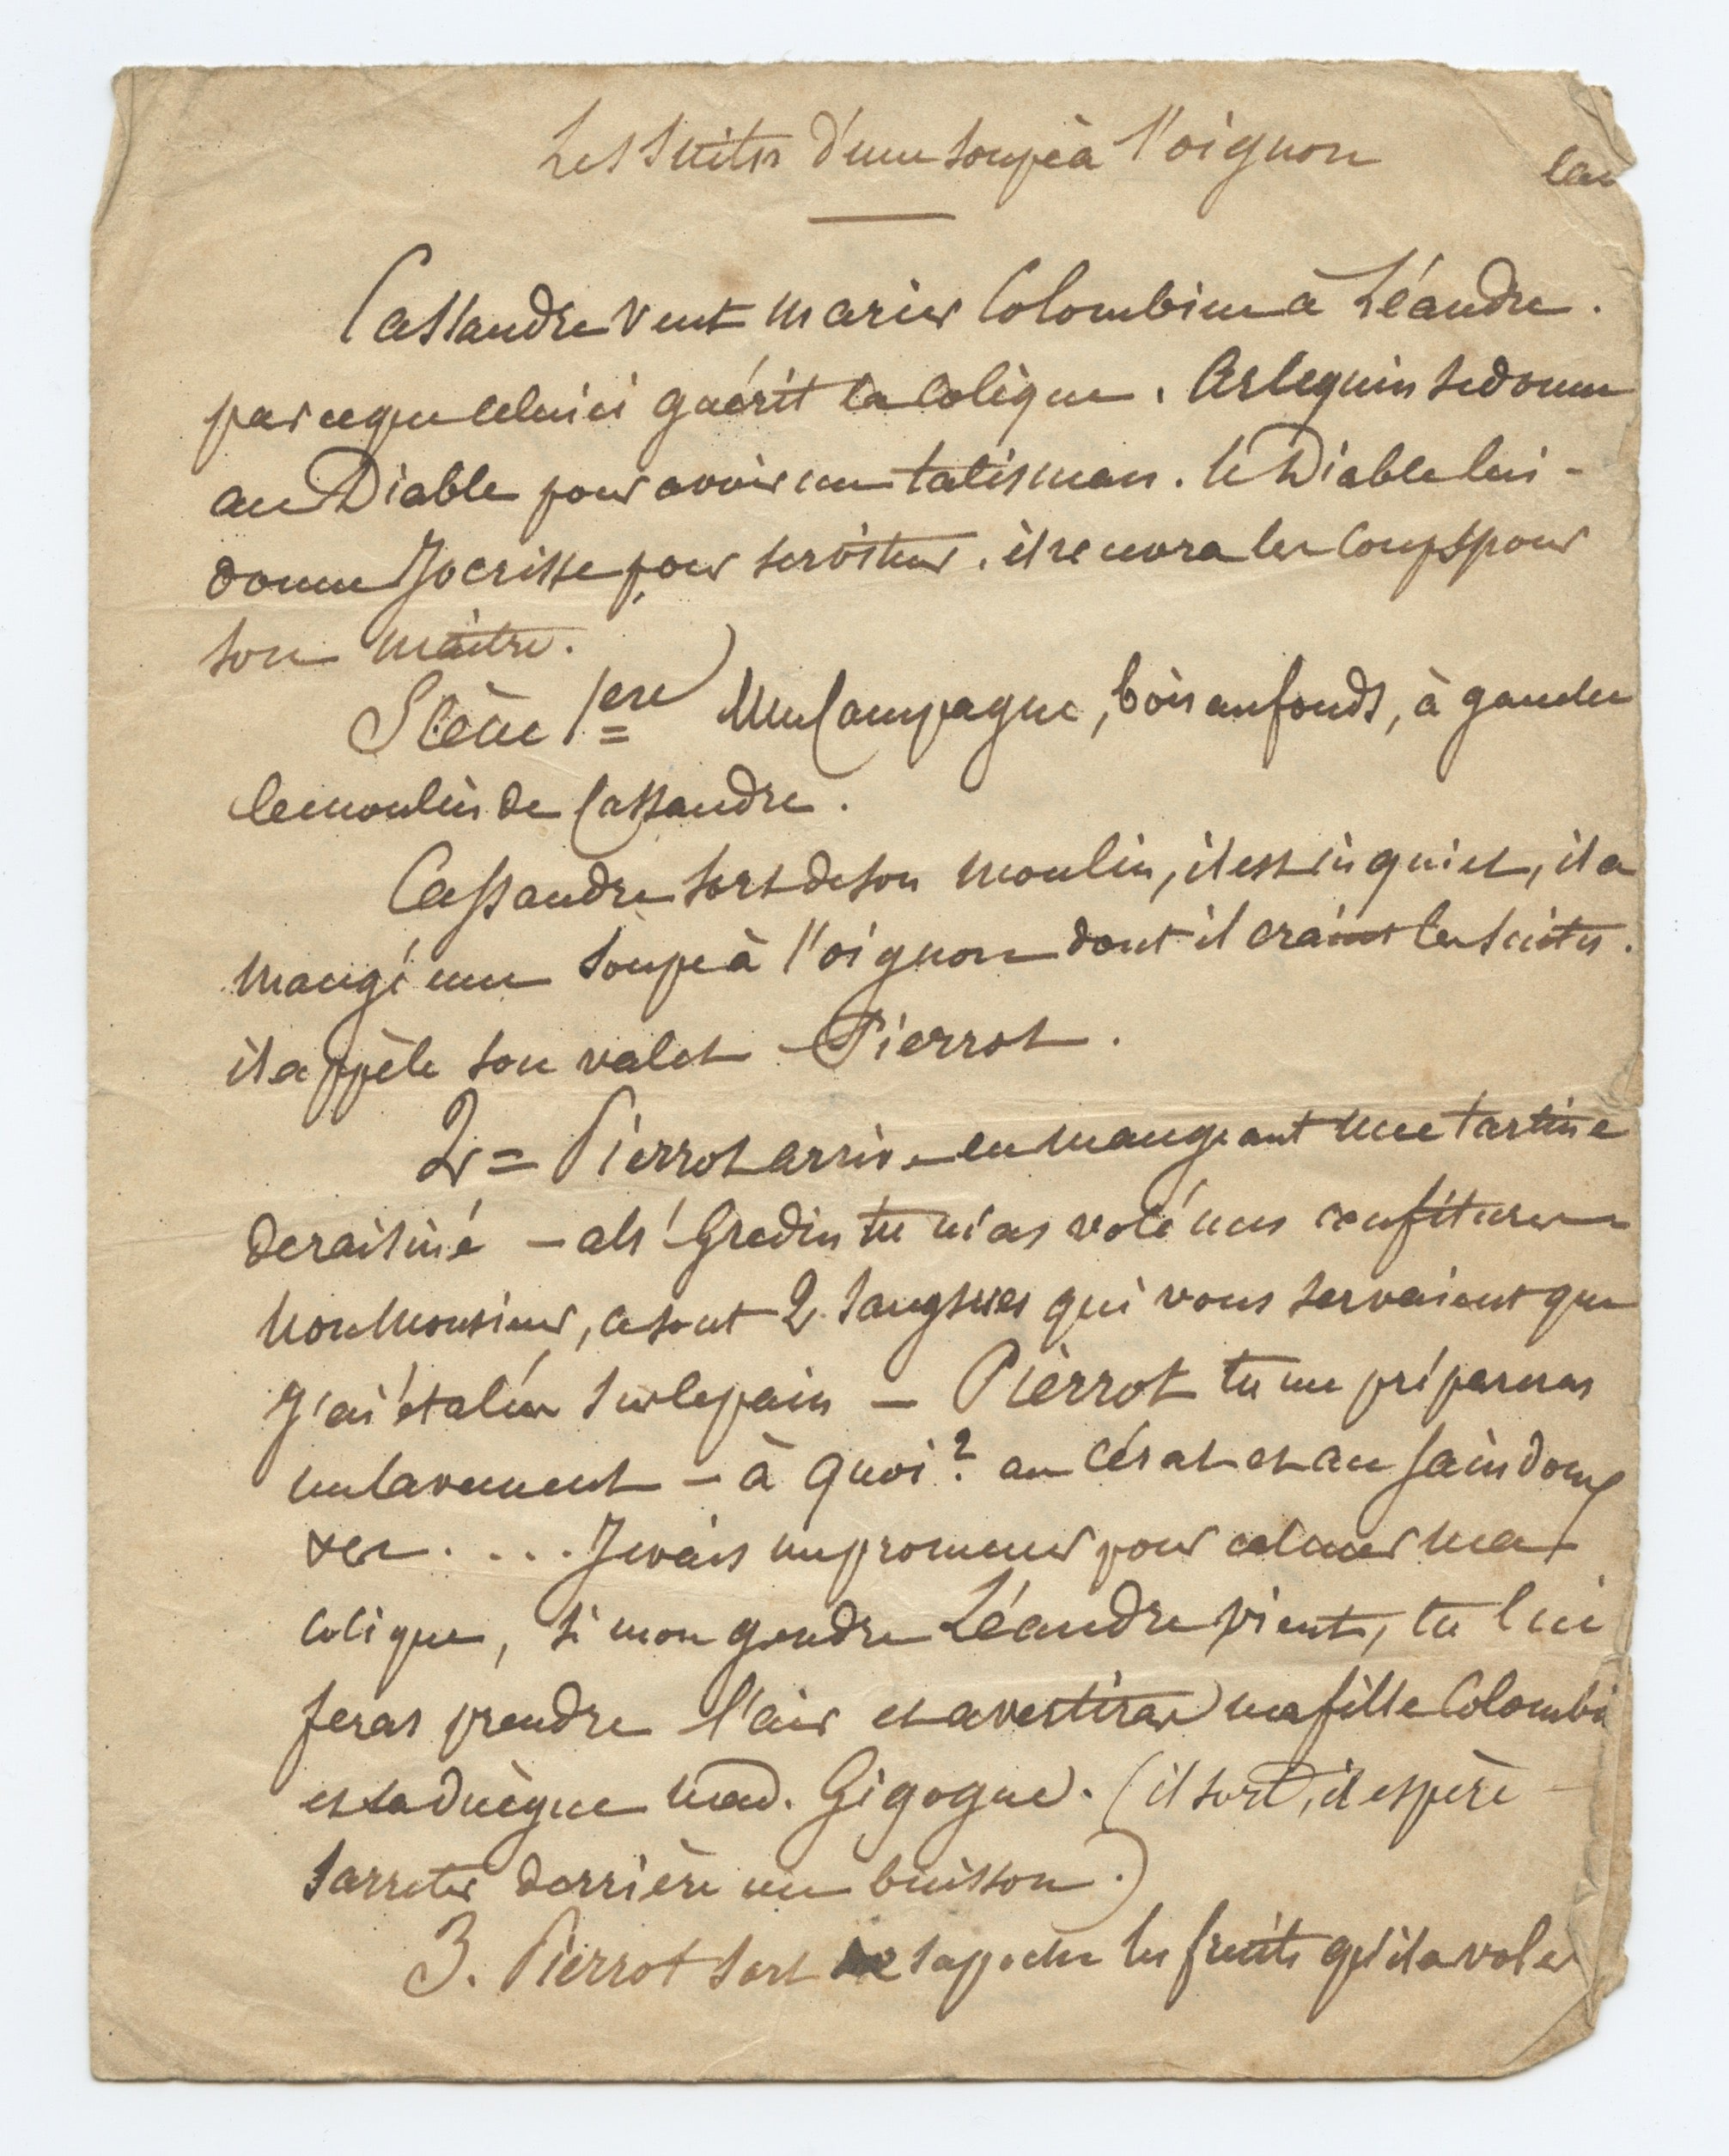 Les suites d'une soupe à l'oignon
Cassandre veut marier Colombine à Léandre.
parceque celui ci guérit la colique. Arlequin se donne
au Diable pour avoir un talisman. le Diable lui-
donne Jocrisse pour serviteur. il recevra les coups pour
son maître.
Scène 1ere Une Campagne, bois au fonds, à gauche
le moulin de Cassandre.
Cassandre sort de son moulin, il est inquiet, il a
mangé une soupe à l'oignon dont il craint les suites.
il appèle son valet - Pierrot.
2 = Pierrot arrive en mangeant une tartine
de raisiné - ah! Gredin tu m'as volé mes confitures
Non Monsieur, ce sont 2 sangsues qui vous servaient que
j'ai étalées sur le pain - Pierrot tu me prépareras
un lavement - à quoi? au cérat et au saindoux
.... Je vais me promener pour calmer ma
colique, si mon gendre Léandre vient, tu lui
feras prendre l'air et avertiras ma fille Colombi
et sa duègue mad. Gigogne. (il sort, il espère
sarreter derrière un buisson.)
3. Pierrot sort de sa poche les fruits qu'il a volés